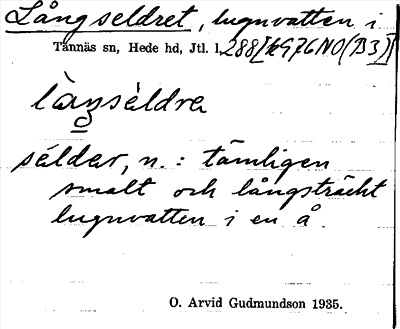 Långseldret, lugnvatten i
Tännäs sn, Hede hd, Jtl. l. 288 [kG76NO(B3)]
làŋséldra
séldər, n.: tämligen
smalt och långsträckt
lugnvatten i en å.
O. Arvid Gudmundson 1935.